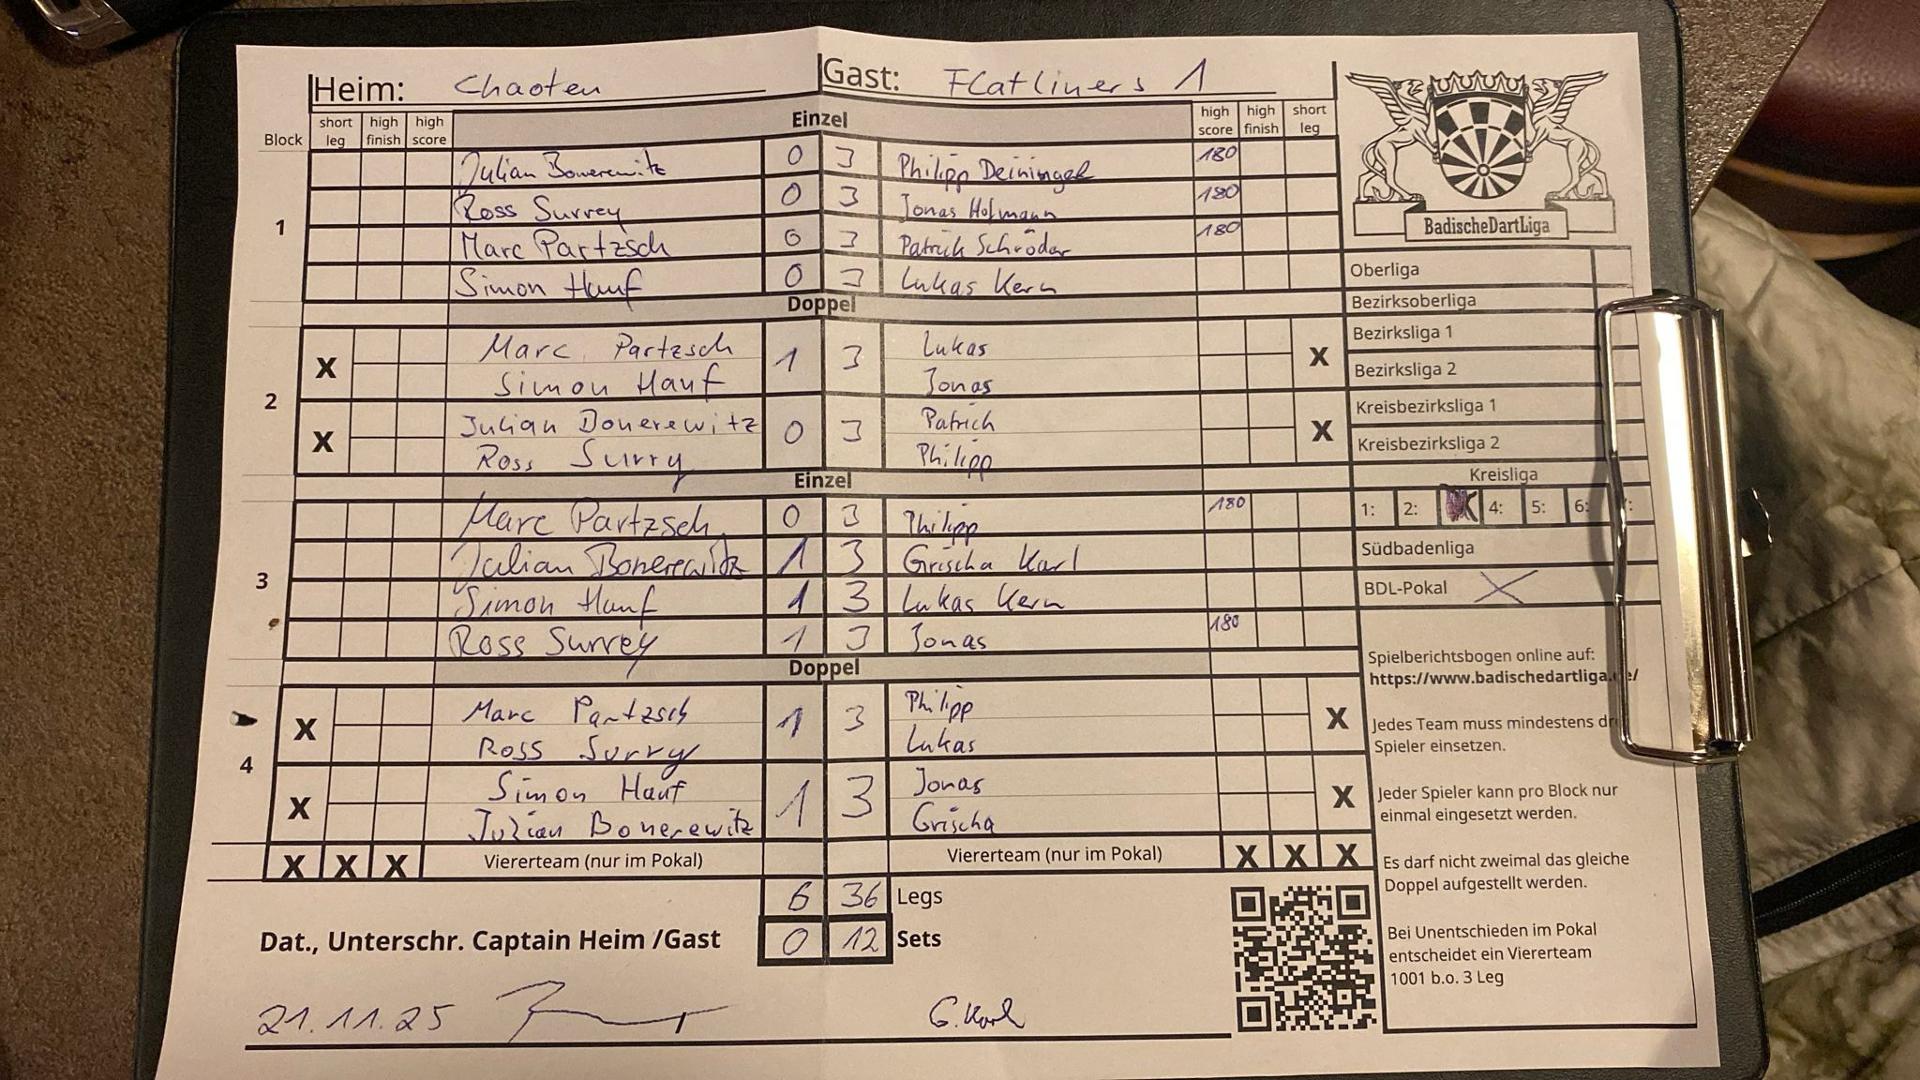 Heim: Chaoten Gast: Flatliners 1
Block short leg high finish high score Einzel high score high finish short leg
1
Julian Bonerewitz 0 3 Philipp Deininger 180
Ross Surrey 0 3 Jonas Hofmann 180
Marc Partzsch 0 3 Patrick Schröder 180
Simon Hauf 0 3 Lukas Kern
Doppel
2
X Marc Partzsch 1 3 Lukas X
Simon Hauf Jonas
X Julian Bonerewitz 0 3 Patrick X
Ross Surry Philipp
Einzel
3
Marc Partzsch 0 3 Philipp 180
Julian Bonerewitz 1 3 Grischa Karl
Simon Hauf 1 3 Lukas Kern
Ross Surrey 1 3 Jonas 180
Doppel
4
X Marc Partzsch 1 3 Philipp X
Ross Surry Lukas
X Simon Hauf 1 3 Jonas X
Julian Bonerewitz Grischa
X X X Viererteam (nur im Pokal) Viererteam (nur im Pokal) X X X
6 36 Legs
Dat., Unterschr. Captain Heim /Gast 0 12 Sets
21.11.25 G. Karl
BadischeDartLiga
Oberliga
Bezirksoberliga
Bezirksliga 1
Bezirksliga 2
Kreisbezirksliga 1
Kreisbezirksliga 2
Kreisliga
1: 2: 4: 5: 6:
Südbadenliga
BDL-Pokal X
Spielberichtsbogen online auf:
https://www.badischedartliga.de/
Jedes Team muss mindestens
Spieler einsetzen.
Jeder Spieler kann pro Block nur
einmal eingesetzt werden.
Es darf nicht zweimal das gleiche
Doppel aufgestellt werden.
Bei Unentschieden im Pokal
entscheidet ein Viererteam
1001 b.o. 3 Leg